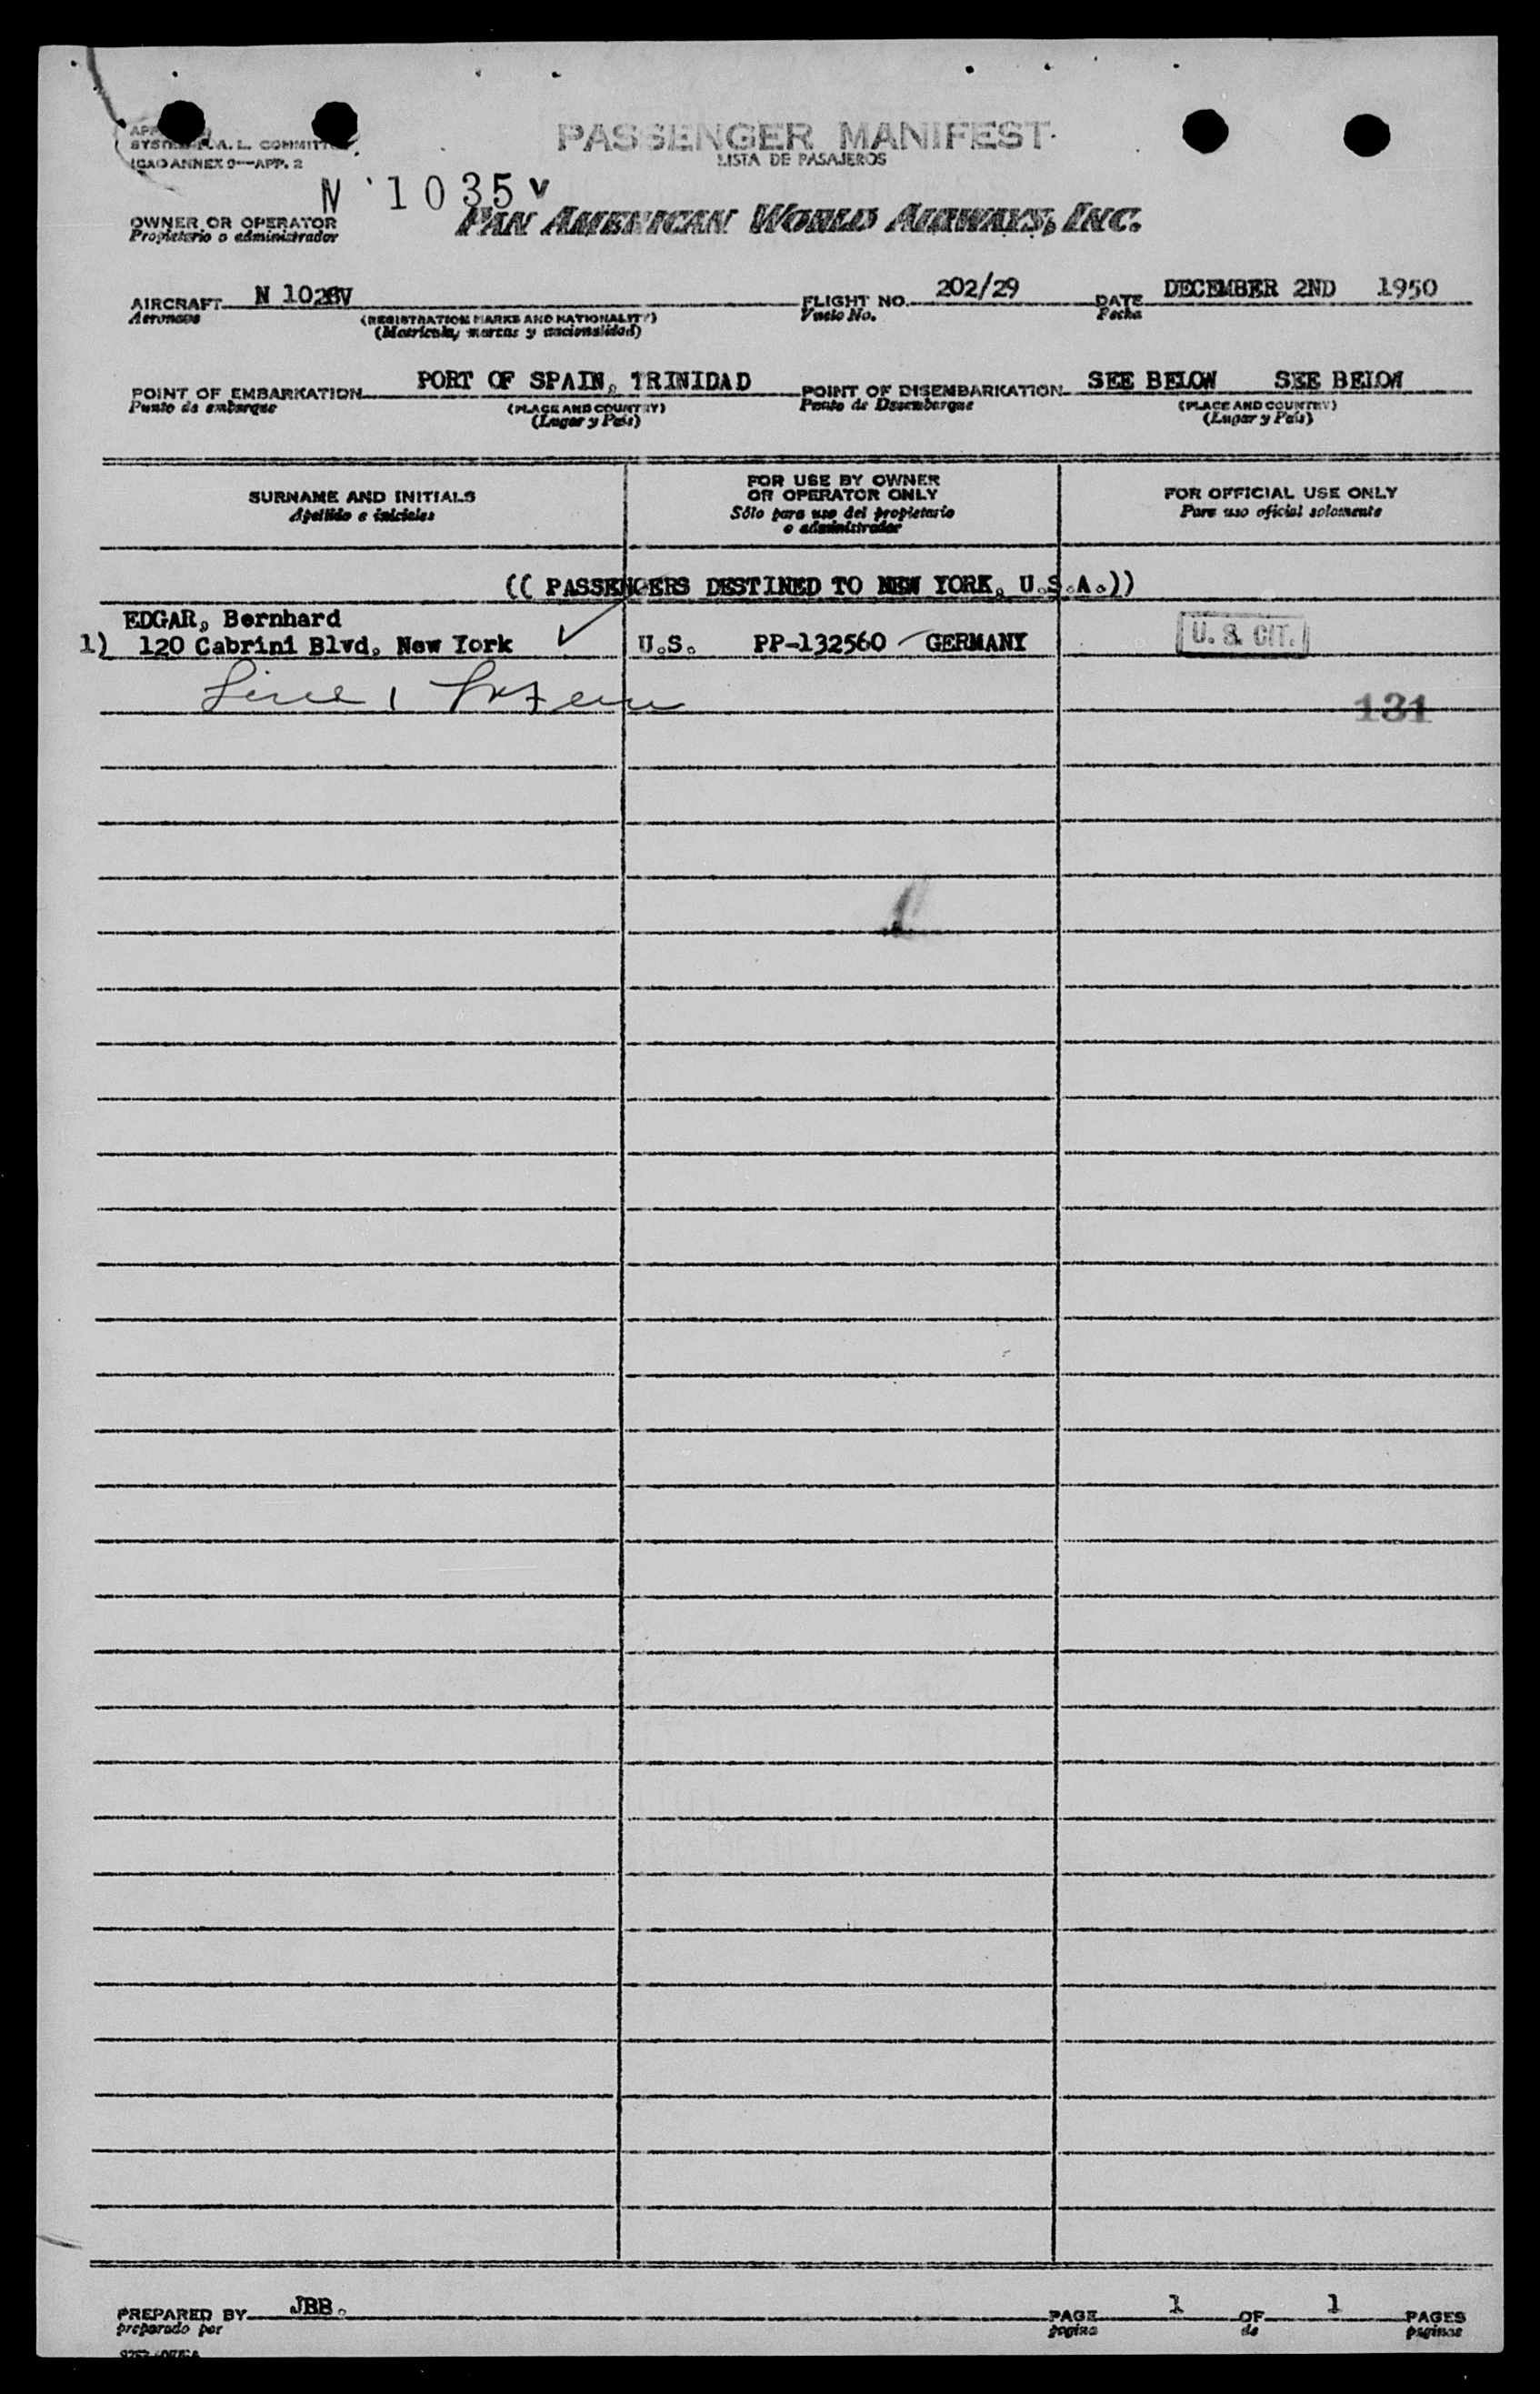 PASSENGER MANIFEST
LISTA DE PASAJEROS
ICAO ANNEX 9—APP. 2
N 1035V
OWNER OR OPERATOR
Propietario o administrador
PAN AMERICAN WORLD AIRWAYS, INC.
AIRCRAFT N 1028V FLIGHT NO. 202/29 DATE DECEMBER 2ND 1950
Aeronave (REGISTRATION MARKS AND NATIONALITY) Vuelo No. Fecha
(Matrícula, marcas y nacionalidad)
POINT OF EMBARKATION PORT OF SPAIN, TRINIDAD POINT OF DISEMBARKATION SEE BELOW SEE BELOW
Punto de embarque (PLACE AND COUNTRY) Punto de Desembarque (PLACE AND COUNTRY)
(Lugar y País) (Lugar y País)
SURNAME AND INITIALS
Apellido e iniciales
FOR USE BY OWNER
OR OPERATOR ONLY
Sólo para uso del propietario
o administrador
FOR OFFICIAL USE ONLY
Para uso oficial solamente
(( PASSENGERS DESTINED TO NEW YORK, U.S.A.))
EDGAR, Bernhard
1) 120 Cabrini Blvd. New York U.S. PP-132560 GERMANY U. S. CIT.
131
PREPARED BY JBB. PAGE 1 OF 1 PAGES
preparado por pagina de paginas